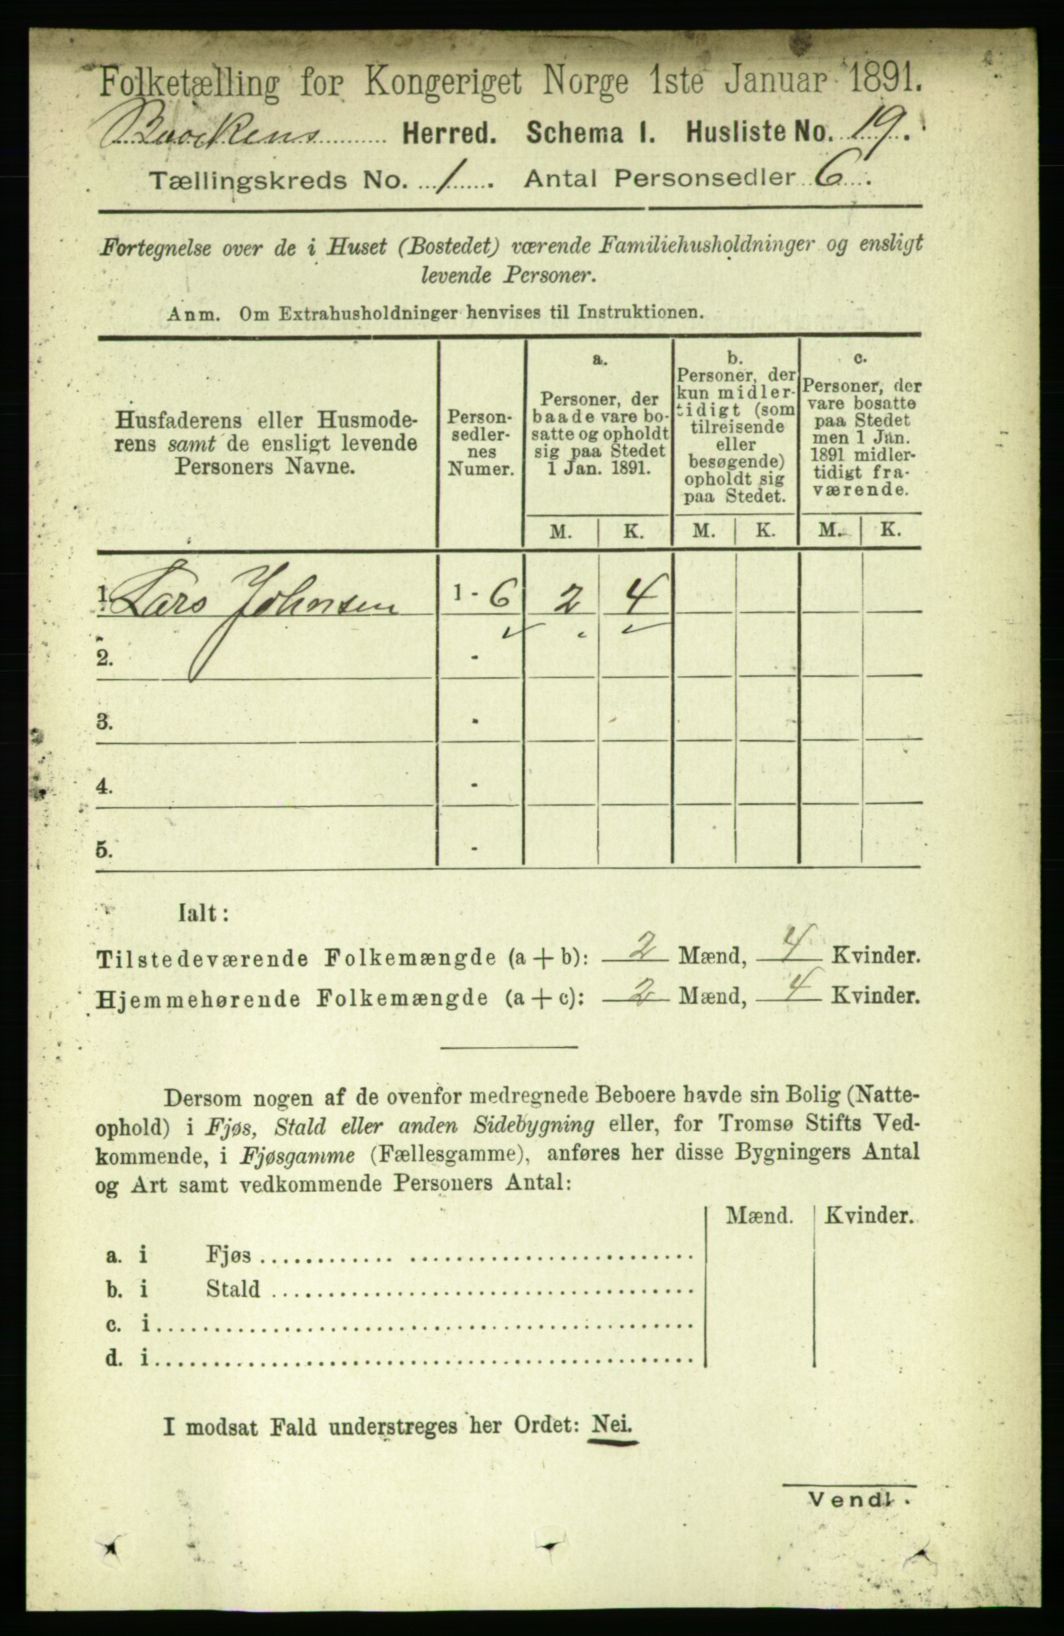 Folketælling for Kongeriget Norge 1ste Januar 1891.
Herred. Schema I. Husliste No. 19.
Tællingskreds No. 1. Antal Personsedler 6.
Fortegnelse over de i Huset (Bostedet) værende Familiehusholdninger og ensligt
levende Personer.
Anm. Om Extrahusholdninger henvises til Instruktionen.
Husfaderens eller Husmode-
rens samt de ensligt levende
Personers Navne.
Person-
sedler-
nes
Numer.
a.
Personer, der
baade vare bo-
satte og opholdt
sig paa Stedet
1 Jan. 1891.
b.
Personer, der
kun midler-
tidigt (som
tilreisende
eller
besøgende)
opholdt sig
paa Stedet.
c.
Personer, der
vare bosatte
paa Stedet
men 1 Jan.
1891 midler-
tidigt fra-
værende.
M. K. M. K. M. K.
1. Lars Johnsen 1 - 6 2 4
2. -
3. -
4. -
5. -
Ialt:
Tilstedeværende Folkemængde (a + b): 2 Mænd, 4 Kvinder.
Hjemmehørende Folkemængde (a + c): 2 Mænd, 4 Kvinder.
Dersom nogen af de ovenfor medregnede Beboere havde sin Bolig (Natte-
ophold) i Fjøs, Stald eller anden Sidebygning eller, for Tromsø Stifts Ved-
kommende, i Fjøsgamme (Fællesgamme), anføres her disse Bygningers Antal
og Art samt vedkommende Personers Antal:
Mænd. Kvinder.
a. i Fjøs
b. i Stald
c. i
d. i
I modsat Fald understreges her Ordet: Nei.
Vend!